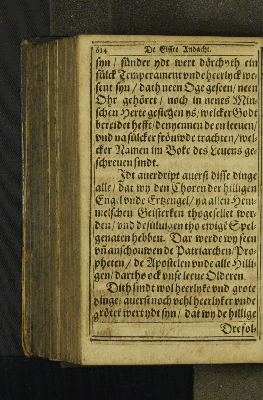 614 De Elffte Andacht.
syn / sünder ydt wert dörchvth ein
sülck Temperament vnde heerlyck we-
sent syn / dath neen Oge geseen / neen
Ohr gehöret / noch in nenes Min-
schen Herte gestegen ys / welcker Godt
bereidet hefft / den yennen de en leeuen /
vnd na sülcker fröuwde trachten / wel-
cker Namen im Boke des Leuens ge-
schreuen sindt.
Idt auerdript auerst disse dinge
alle / dat wy den Choren der hilligen
Engel vnde Ertzengel / na allen Hem-
melschen Geisterken thogesellet wer-
den / vnd desüluigen tho ewige Spel-
genaten hebben. Dar werde wy seen
vn anschouwen de Patriarchen / Pro-
pheten / de Apostelen vnde alle Hilli-
gen / dartho ock vnse leeue Olderen.
Dith sindt wol heerlyke vnd grote
dinge: auerst noch vehl heerlyker vnde
gröter wert ydt syn / dat wy de hillige
Drefol-